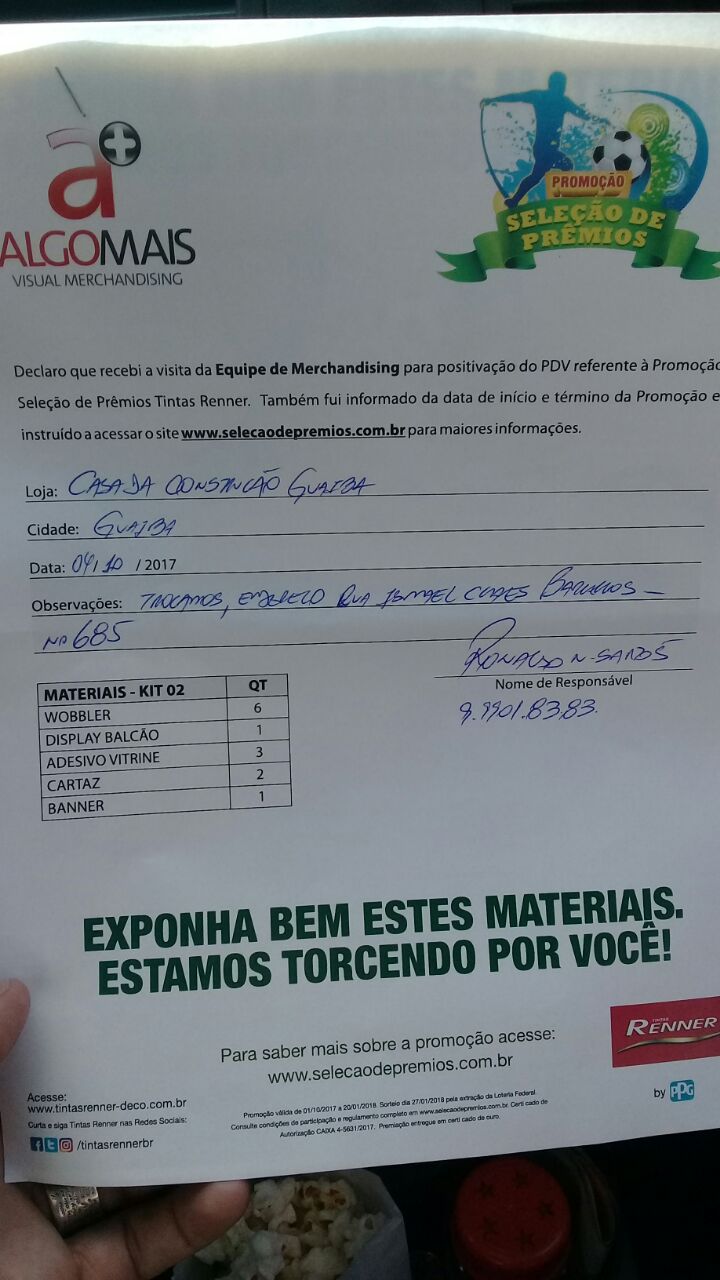 a+
ALGOMAIS
VISUAL MERCHANDISING
PROMOÇÃO
SELEÇÃO DE
PRÊMIOS
Declaro que recebi a visita da Equipe de Merchandising para positivação do PDV referente à Promoção
Seleção de Prêmios Tintas Renner. Também fui informado da data de início e término da Promoção e
instruído a acessar o site www.selecaodepremios.com.br para maiores informações.
Loja: CASA DA CONSTRUÇÃO GUAIBA
Cidade: GUAIBA
Data: 04/10 / 2017
Observações: TROCAMOS, ENDEREÇO RUA ISMAEL
Nº 685
RONALSO N. SANTOS
Nome de Responsável
9.9901.83.83.
MATERIAIS - KIT 02 QT
WOBBLER 6
DISPLAY BALCÃO 1
ADESIVO VITRINE 3
CARTAZ 2
BANNER 1
EXPONHA BEM ESTES MATERIAIS.
ESTAMOS TORCENDO POR VOCÊ!
Para saber mais sobre a promoção acesse:
www.selecaodepremios.com.br
TINTAS
RENNER
by PPG
Acesse:
www.tintasrenner-deco.com.br
Curta e siga Tintas Renner nas Redes Sociais:
/tintasrennerbr
Promoção válida de 01/10/2017 a 20/01/2018. Sorteio dia 27/01/2018 pela extração da Loteria Federal.
Consulte condições de participação e regulamento completo em www.selecaodepremios.com.br. Certi cado de
Autorização CAIXA 4-5631/2017. Premiação entregue em certi cado de ouro.